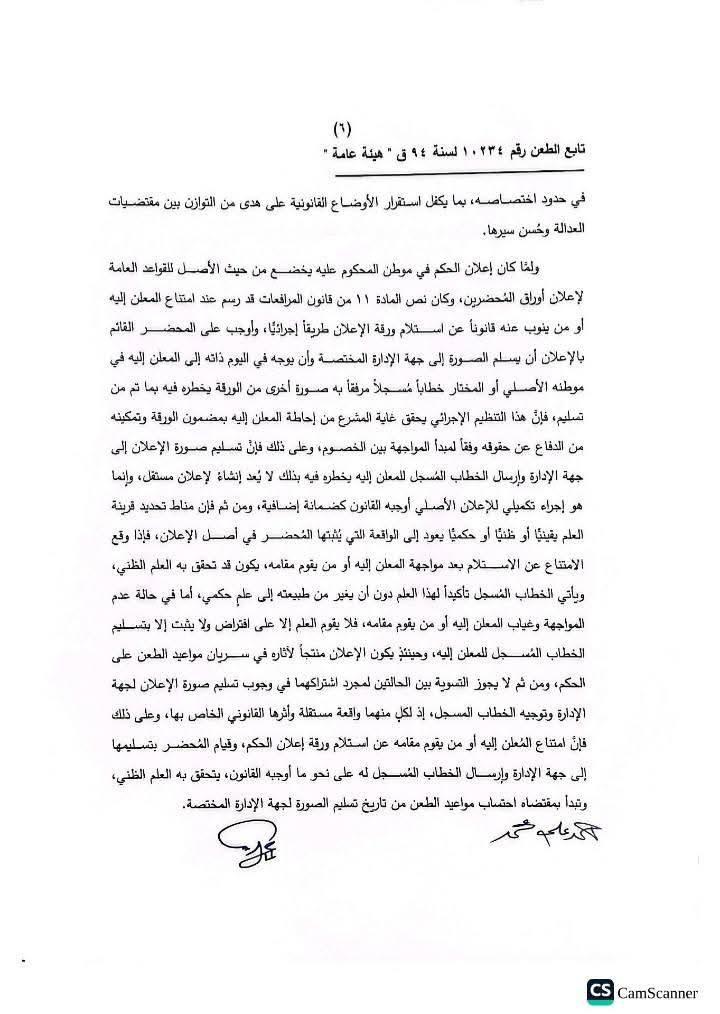 (٦)
تابع الطعن رقم ١٠٢٣٤ لسنة ٩٤ ق " هيئة عامة "
في حدود اختصاصه، بما يكفل استقرار الأوضاع القانونية على هدى من التوازن بين مقتضيات
العدالة وحُسن سيرها.
ولمَّا كان إعلان الحكم في موطن المحكوم عليه يخضع من حيث الأصل للقواعد العامة
لإعلان أوراق المُحضرين، وكان نص المادة ١١ من قانون المرافعات قد رسم عند امتناع المعلن إليه
أو من ينوب عنه قانوناً عن استلام ورقة الإعلان طريقاً إجرائيًّا، وأوجب على المحضر القائم
بالإعلان أن يسلم الصورة إلى جهة الإدارة المختصة وأن يوجه في اليوم ذاته إلى المعلن إليه في
موطنه الأصلي أو المختار خطاباً مُسجلاً مرفقاً به صورة أخرى من الورقة يخطره فيه بما تم من
تسليم، فإنَّ هذا التنظيم الإجرائي يحقق غاية المشرع من إحاطة المعلن إليه بمضمون الورقة وتمكينه
من الدفاع عن حقوقه وفقاً لمبدأ المواجهة بين الخصوم، وعلى ذلك فإنَّ تسليم صورة الإعلان إلى
جهة الإدارة وإرسال الخطاب المُسجل للمعلن إليه يخطره فيه بذلك لا يُعد إنشاءً لإعلان مستقل، وإنما
هو إجراء تكميلي للإعلان الأصلي أوجبه القانون كضمانة إضافية، ومن ثم فإن مناط تحديد قرينة
العلم يقينيًّا أو ظنيًّا أو حكميًّا يعود إلى الواقعة التي يُثبتها المُحضر في أصل الإعلان، فإذا وقع
الامتناع عن الاستلام بعد مواجهة المعلن إليه أو من يقوم مقامه، يكون قد تحقق به العلم الظني،
ويأتي الخطاب المُسجل تأكيداً لهذا العلم دون أن يغير من طبيعته إلى علمٍ حكمي، أما في حالة عدم
المواجهة وغياب المعلن إليه أو من يقوم مقامه، فلا يقوم العلم إلا على افتراض ولا يثبت إلا بتسليم
الخطاب المُسجل للمعلن إليه، وحينئذٍ يكون الإعلان منتجاً لآثاره في سريان مواعيد الطعن على
الحكم، ومن ثم لا يجوز التسوية بين الحالتين لمجرد اشتراكهما في وجوب تسليم صورة الإعلان لجهة
الإدارة وتوجيه الخطاب المسجل، إذ لكلٍ منهما واقعة مستقلة وأثرها القانوني الخاص بها، وعلى ذلك
فإنَّ امتناع المُعلن إليه أو من يقوم مقامه عن استلام ورقة إعلان الحكم، وقيام المُحضر بتسليمها
إلى جهة الإدارة وإرسال الخطاب المُسجل له على نحو ما أوجبه القانون، يتحقق به العلم الظني،
وتبدأ بمقتضاه احتساب مواعيد الطعن من تاريخ تسليم الصورة لجهة الإدارة المختصة.
CS CamScanner